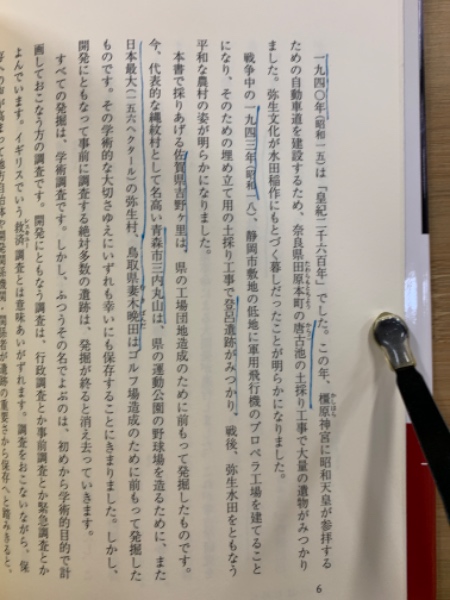 一九四〇年(昭和一五)は「皇紀二千六百年」でした。この年、橿原神宮に昭和天皇が参拝する
ための自動車道を建設するため、奈良県田原本町の唐古池の土採り工事で大量の遺物がみつかり
ました。弥生文化が水田稲作にもとづく暮しだったことが明らかになりました。
戦争中の一九四三年(昭和一八)、静岡市敷地の低地に軍用飛行機のプロペラ工場を建てること
になり、そのための埋め立て用の土採り工事で登呂遺跡がみつかり、戦後、弥生水田をともなう
平和な農村の姿が明らかになりました。
本書で採りあげる佐賀県吉野ヶ里は、県の工場団地造成のために前もって発掘したものです。
今、代表的な縄紋村として名高い青森市三内丸山は、県の運動公園の野球場を造るために、また
日本最大(一五六ヘクタール)の弥生村、鳥取県妻木晩田はゴルフ場造成のために前もって発掘した
ものです。その学術的な大切さゆえにいずれも幸いにも保存することにきまりました。しかし、
開発にともなって事前に調査する絶対多数の遺跡は、発掘が終ると消え去っていきます。
すべての発掘は、学術調査です。しかし、ふつうその名でよぶのは、初めから学術的目的で計
画しておこなう方の調査です。開発にともなう調査は、行政調査とか事前調査とか緊急調査とか
よんでいます。イギリスでいう救済調査とは意味あいがずれます。調査をおこないながら、保
6